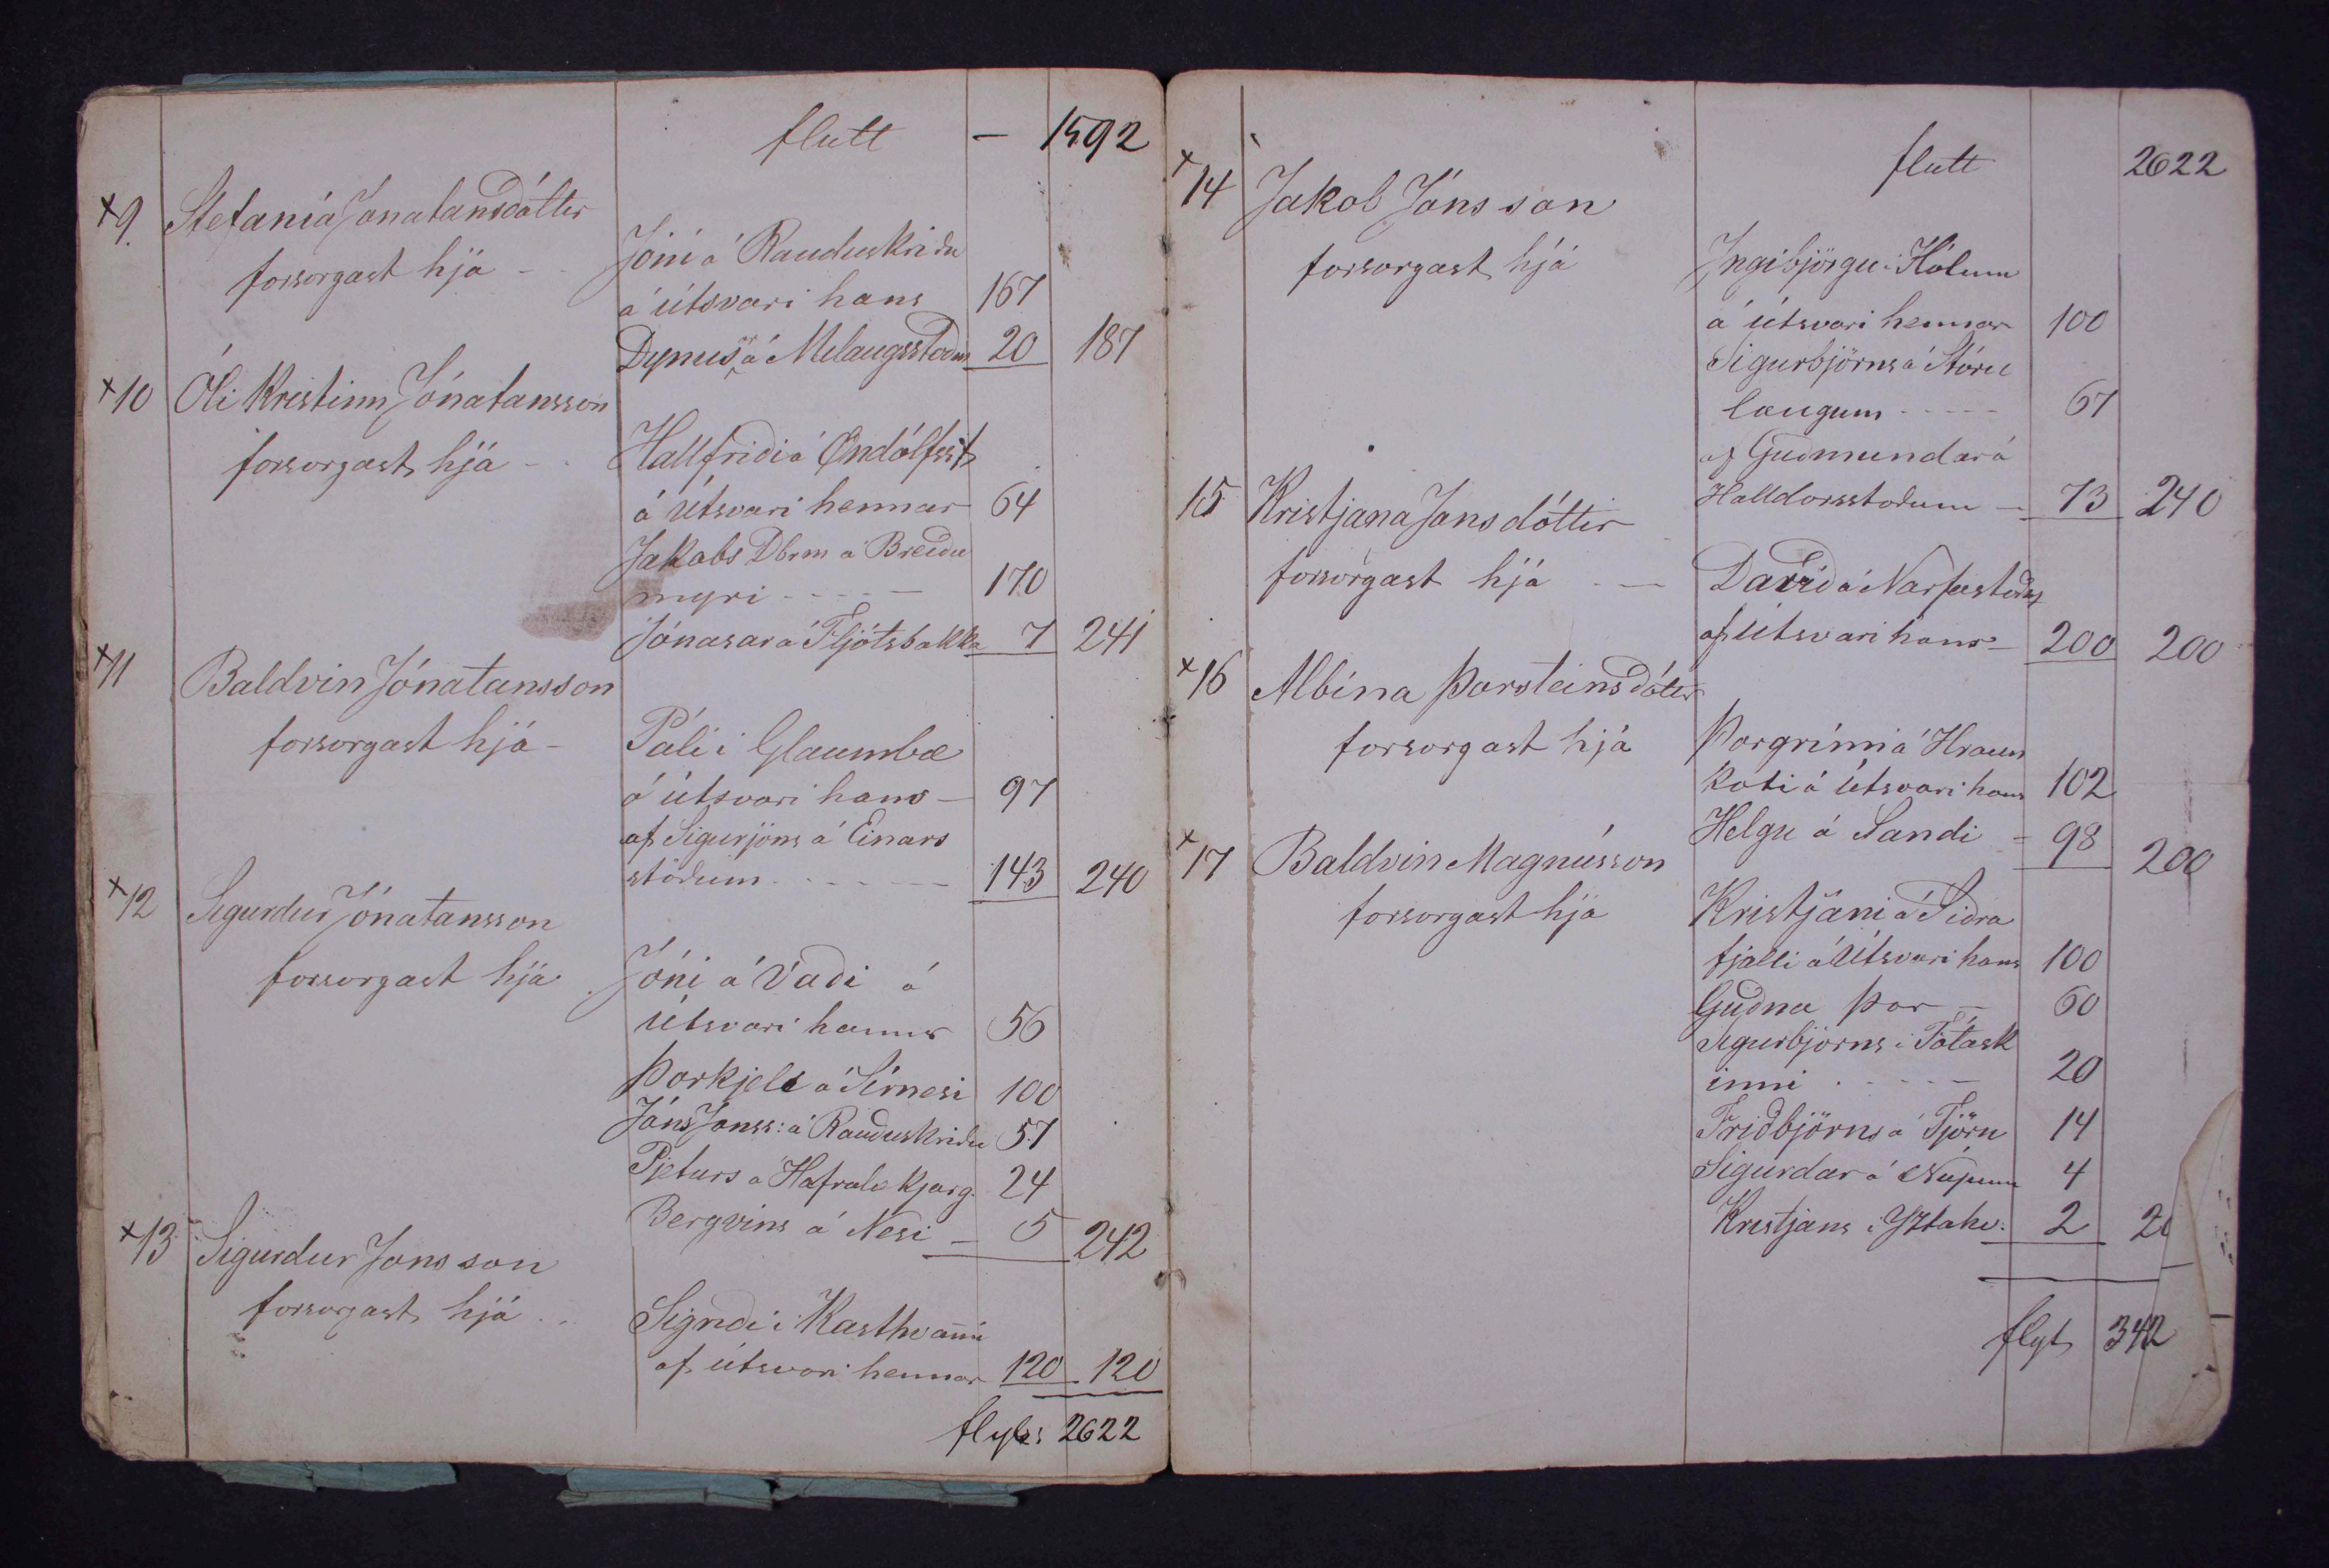 flutt - 1592
×9. Stefanía Jónatansdóttir
forsorgast hjá - - Jóni á Rauduskridu
á útsvari hans 167
Dynusar á Mílaugsstodum 20 187
×10 Óli Kristinn Jónatansson
forsorgast hjá - - Hallfridi á Öndólfsst
á útsvari hennar 64
Jakobs Dbrm á Breidu
mýri - - - - - 170
Jónasar á Fljótsbakka 7 241
×11 Baldvin Jónatansson
forsorgast hjá - Páli i Glaumbæ
á útsvari hans - 97
af Sigurjóns á Einars
stödum - - - - - 143 240
×12 Sigurdur Jónatansson
forsorgast hjá Jóni á Vadi á
útsvari hanns 56
Þorkjels á Sírnesi 100
Jóns Jónss: á Rauduskridu 57
Pjeturs á Hafralækjarg. 24
Bergvins á Nesi - 5 242
×13 Sigurdur Jónsson
forsorgast hjá . . . Signdi i Kasthvam̄i
af útsvari hennar 120 120
flyts: 2622
flutt 2622
×14 Jakob Jónsson
forsorgast hjá Ingibjörgu i Hólum
á útsvari hennar 100
Sigurbjörns á Stóru
laugum - - - - - 67
af Gudmundar á
Halldorsstodum - 73 240
15 Kristjana Jónsdóttir
forsorgast hjá - - Davíd á Narfastodum
af útsvari hans - 200 200
×16 Albína Þorsteinsdóttir
forsorgast hjá Þorgrími á Hraun
koti á útsvari hans 102
Helgu á Sandi - 98 200
×17 Baldvin Magnússon
forsorgast hjá Kristjáni á Sídra
fjalli á útsvari hans 100
Gudna þar - 60
Sigurbjörns i Fótask
inni - - - - - 20
Fridbjörns á Tjörn 14
Sigurdar á Núpum 4
Kristjans i Yztahv. 2 20
flyt 342